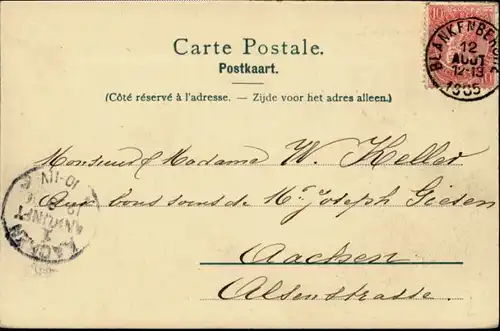 10
BLANKENBERGHE
12
AOUT
12-13
1905
Carte Postale.
Postkaart.
(Côté réservé à l'adresse. — Zijde voor het adres alleen.)
Monsieur & Madame W. Keller
Aux bons soins de Mr. Joseph Giesen
Aachen
Alsenstrasse.
AACHEN
1
ANKUNFT